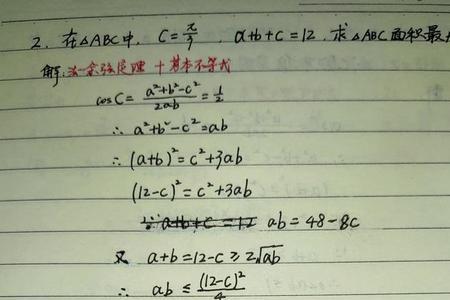 2. 在△ABC中, C=π/3, a+b+c=12, 求△ABC面积最
解: 法一 余弦定理+基本不等式
cosC=(a²+b²-c²)/2ab=1/2
∴ a²+b²-c²=ab
∴ (a+b)²=c²+3ab
(12-c)²=c²+3ab
∵ a+b+c=12 ab=48-8c
又 a+b=12-c≥2√ab
∴ ab≤(12-c)²/4